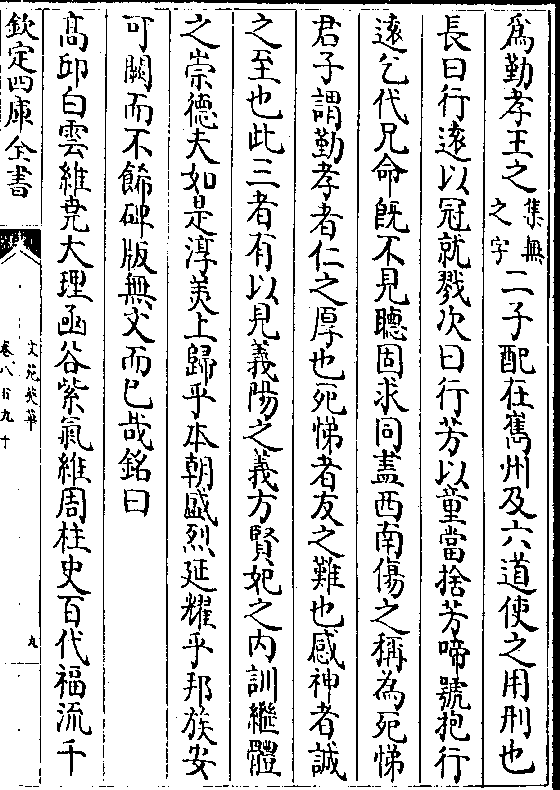 爲勤孝王之集無之字二子配在嶲州及六道使之用刑也
長曰行遠以冠就戮次曰行芳以童當捨芳啼號抱行
遠乞代兄命旣不見聽固求同盡西南傷之稱為死悌
君子謂勤孝者仁之厚也死悌者友之難也感神者誠
之至也此三者有以見義陽之義方賢妃之内訓繼體
之崇德夫如是淳美上歸乎本朝盛烈延耀乎邦族安
可闕而不餙碑版無文而已哉銘曰
髙邱白雲維堯大理函谷紫氣維周柱史百代福流千
欽定四庫全書
文苑英華
卷八百九十
九